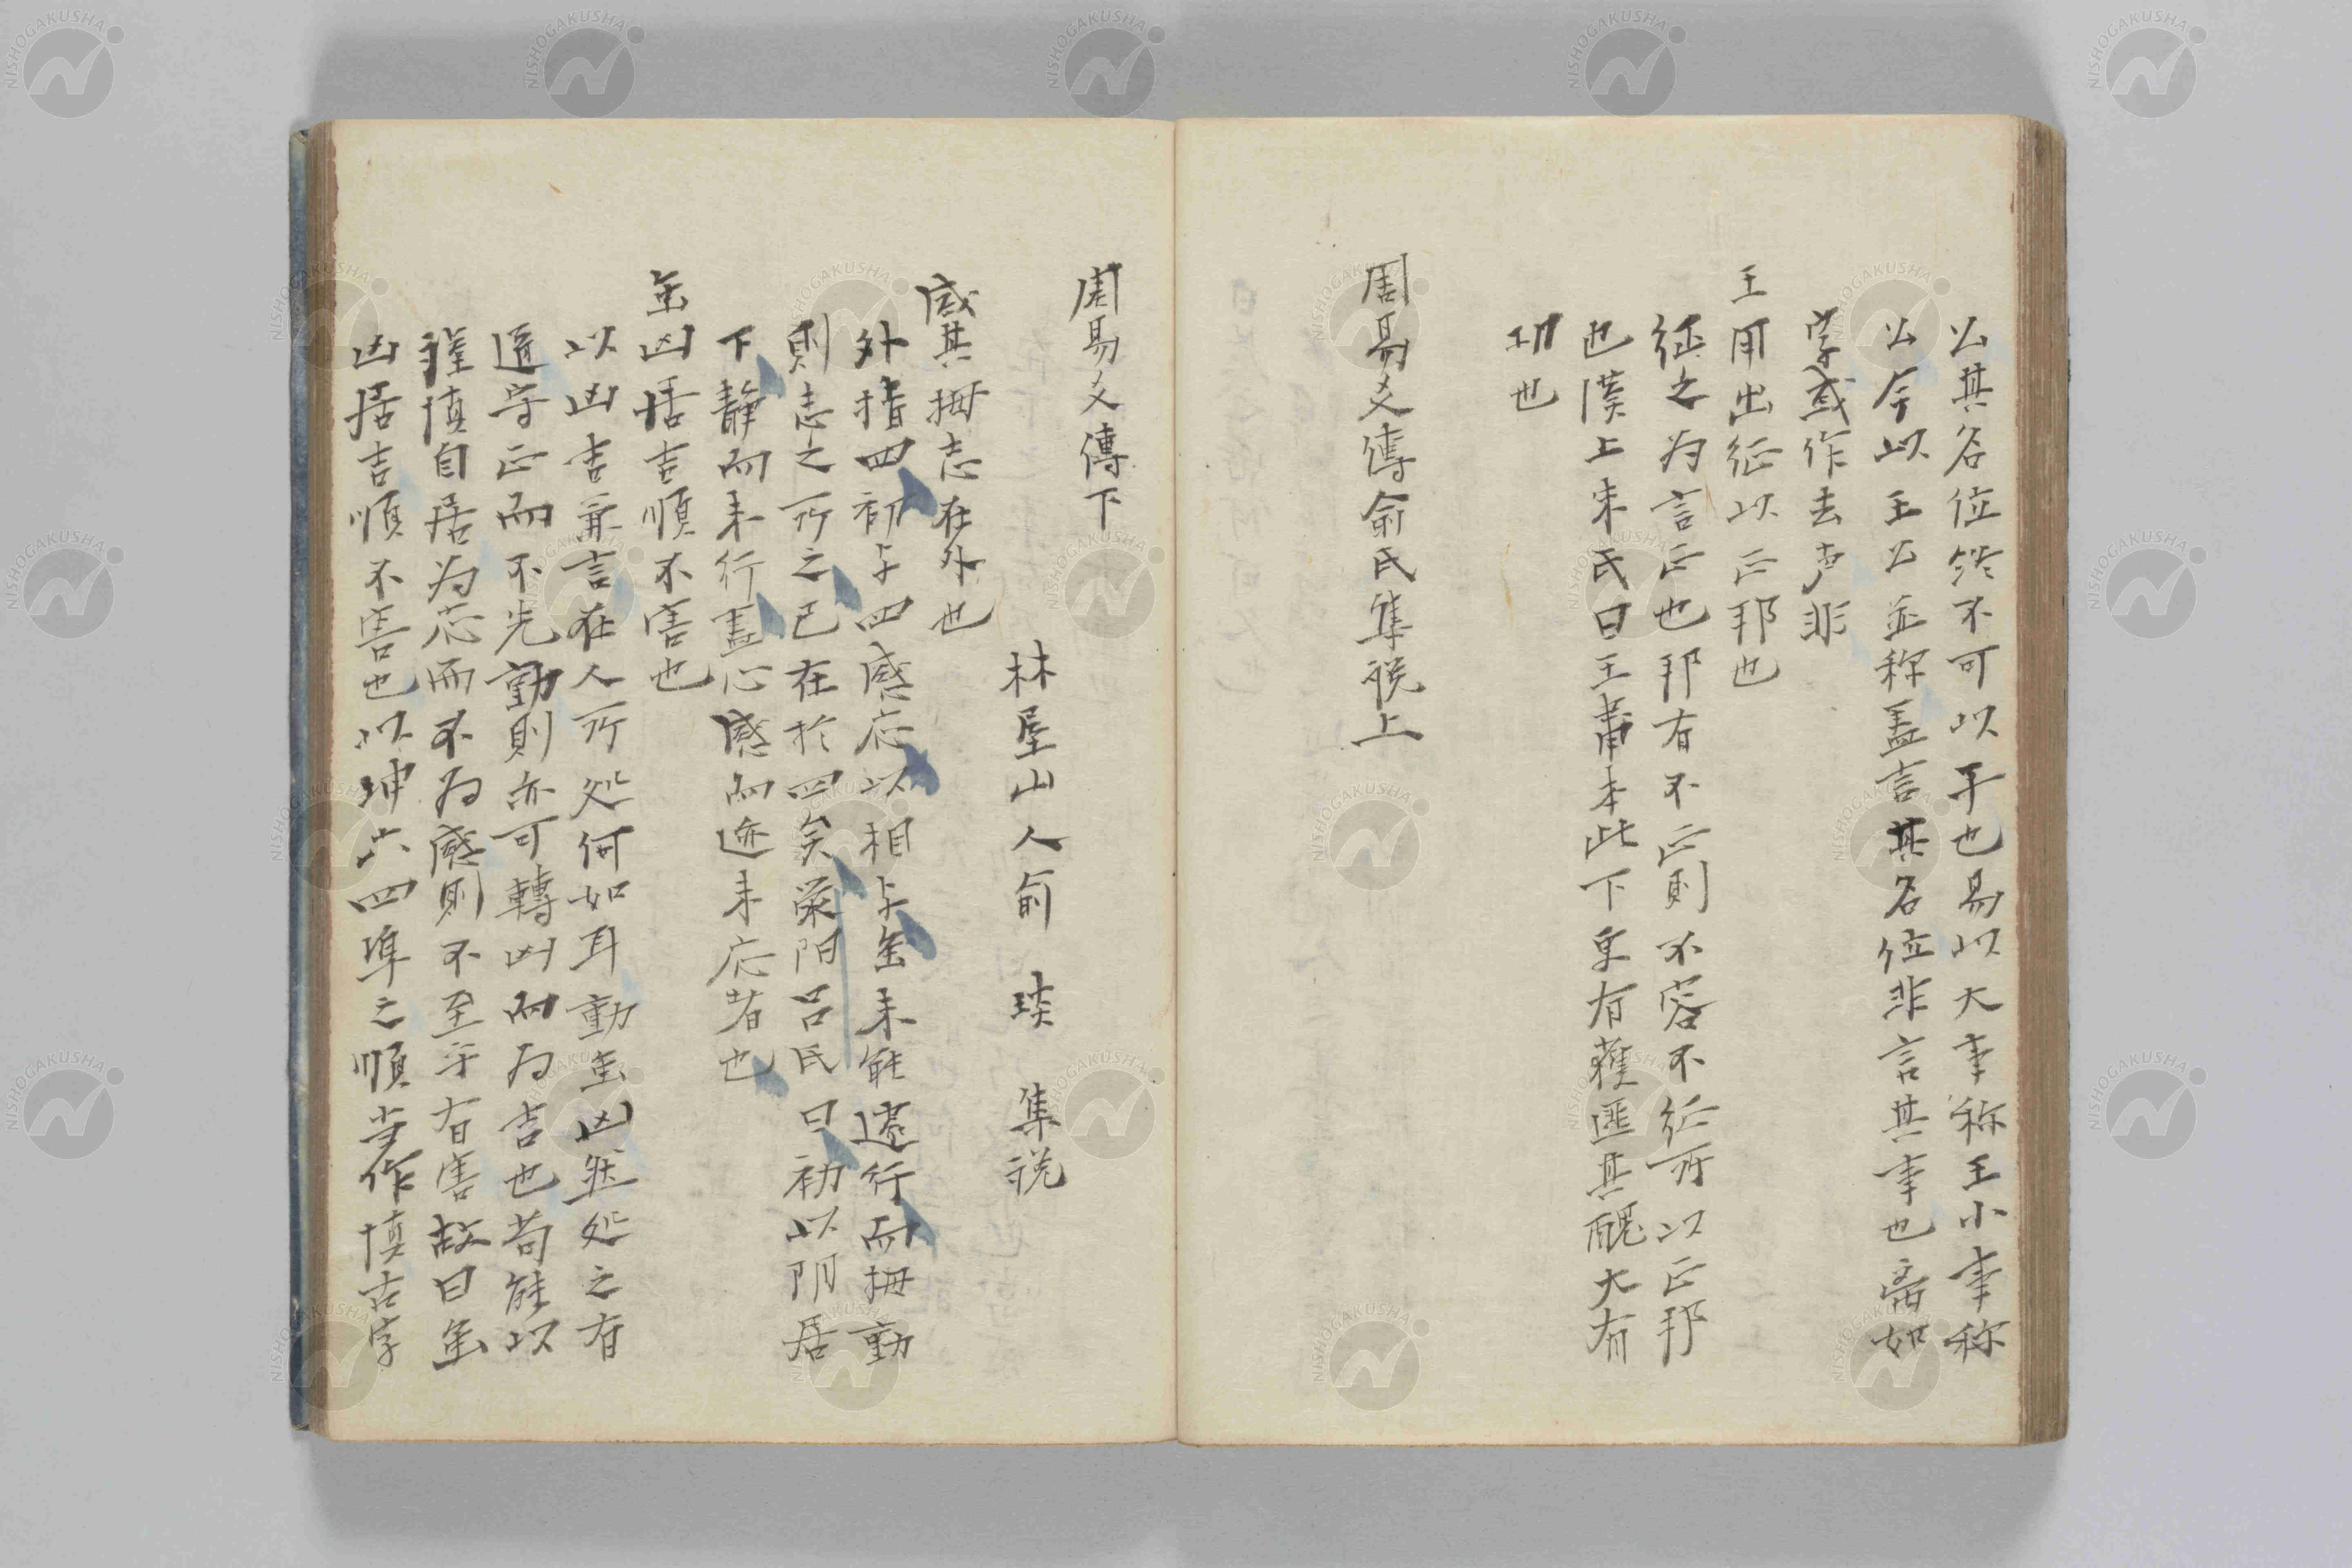 公其名位終不可以干也易以大事称王小事称
公今以王公並称蓋言其名位非言其事也離如
字或作去声非
王用出征以正邦也
征之为言正也邦有不正則不容不征所以正邦
也漢上朱氏曰王肅本此下更有獲匪其醜大有
功也
周易爻傳俞氏集説上
周易爻傳下
林屋山人俞 琰 集説
咸其拇志在外也
外指四初与四感応以相与虽未能遽行而拇動
則志之所之已在於四矣滎阳吕氏曰初以阴居
下静而未行盖心感而迹未応者也
虽凶居吉順不害也
以凶吉兼言在人所处何如耳動虽凶然处之有
道守正而不先動則亦可轉凶而为吉也苟能以
謹慎自居为応而不为感則不至于有害故曰虽
凶居吉順不害也以坤六四準之順当作慎古字
NISHOGAKUSHA